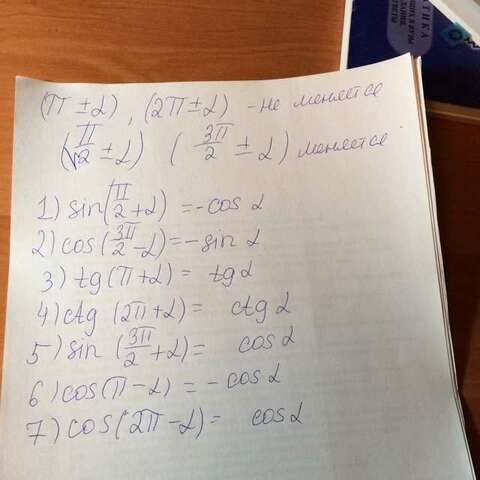 ТИКА
(π ± α) , (2π ± α) - не меняется
(π/2 ± α) (3π/2 ± α) меняется
1) sin(π/2 + α) = -cos α
2) cos(3π/2 - α) = - sin α
3) tg(π + α) = tg α
4) ctg (2π + α) = ctg α
5) sin (3π/2 + α) = cos α
6) cos(π - α) = - cos α
7) cos(2π - α) = cos α